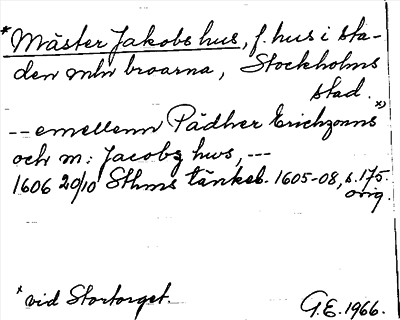 *Mäster Jakobs hus, f. hus i sta-
den mln broarna, Stockholms
stad.
-- emellenn Pädher Erichzonns x)
och m: Jacobz hws, ---
1606 20/10 Sthms tänkeb. 1605-08, s. 175
orig.
x vid Stortorget.
G.E. 1966.